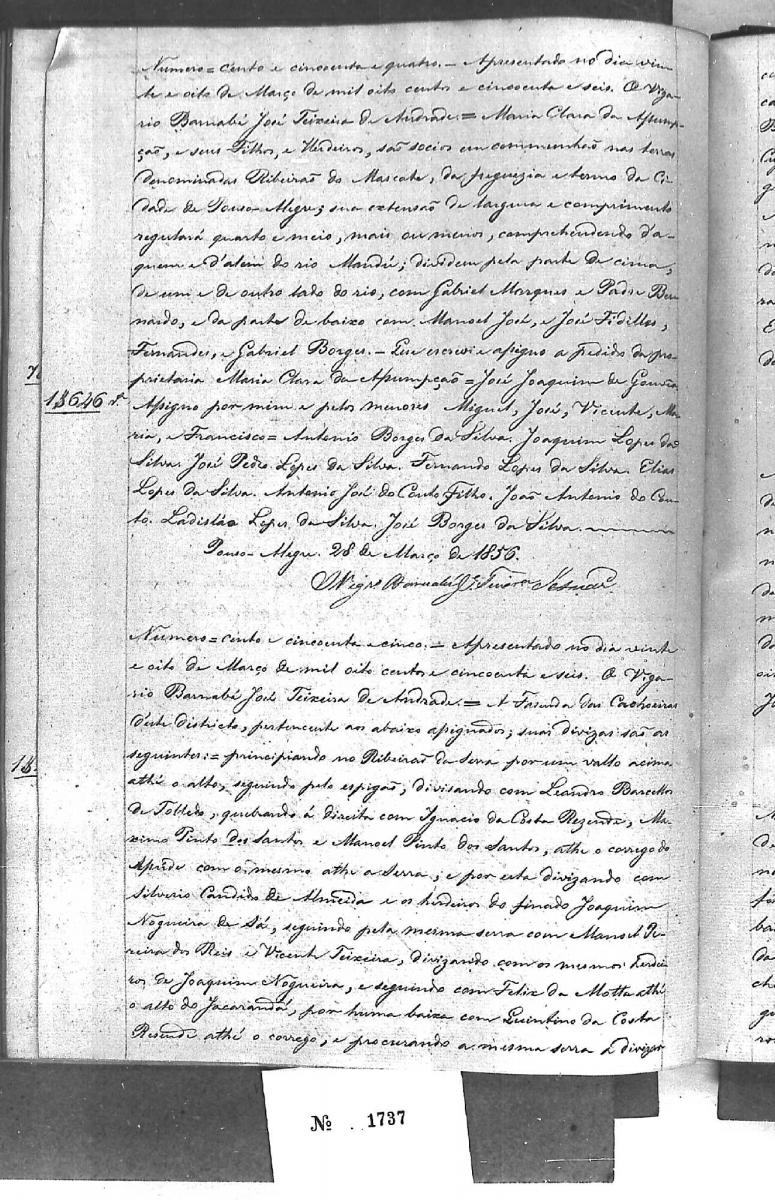 Numero = cento e cincoenta e quatro. – Apresentado no dia vin-
te e oito de Março de mil oito centos e cincoenta e seis. O Viga-
rio Barnabé José Teixeira de Andrade. = Maria Clara da Assump-
ção, e seus Filhos, e Herdeiros, são socios em commenhão nas terras
denominadas Ribeirão do Mascate, da freguezia e termo da Ci-
dade de Pouso-Alegre; sua extensão de largura e comprimento
regulará quarto e meio, mais ou menos, comprehendendo d'a-
quem e d'alem do rio Mandú; dividem pela parte de cima,
de um e de outro lado do rio, com Gabriel Marques e Padre Ber-
nardo, e da parte de baixo com Manoel José, e José Fidelles,
Fernandes, e Gabriel Borges. – Que escrevi e assigno a pedido da pro-
prietaria Maria Clara da Assumpção = José Joaquim de Gouvêa
Assigno por mim e pelos menores Miguel, José, Vicente, Ma-
ria, e Francisco = Antonio Borges da Silva. Joaquim Lopes da
Silva. José Pedro Lopes da Silva. Fernando Lopes da Silva. Elias
Lopes da Silva. Antonio José do Couto Filho. João Antonio do Cou-
to. Ladisláo Lopes da Silva. José Borges da Silva.
Pouso-Alegre. 28 de Março de 1856.
O Vigrº Barnabé Jé Teixra
Numero = cento e cincoenta e cinco. – Apresentado no dia vinte
e oito de Março de mil oito centos e cincoenta e seis. O Viga-
rio Barnabé José Teixeira de Andrade. = A Fasenda das Cachoeiras
d'este districto, pertencente aos abaixo assignados; suas divizas são as
seguintes: = principiando no Ribeirão da Serra por um vallo acima
athé o alto, seguindo pelo espigão, divisando com Leandro Barcellos
de Tolledo, quebrando á direita com Ignacio da Costa Rezende, Ma-
ximo Pinto dos Santos e Manoel Pinto dos Santos, athe o corrego do
Assude com o mesmo athe a Serra; e por esta divizando com
Silverio Candido de Almeida e os herdeiros do finado Joaquim
Nogueira de Sá, seguindo pela mesma serra com Manoel Pe-
reira dos Reis e Vicente Teixeira, divizando com os mesmos herdei-
ros de Joaquim Nogueira, e seguindo com Felix da Motta athé
o alto do Jacarandá, por huma baixa com Quintino da Costa
Resende athé o corrego, e procurando a mesma serra a divizar
13646
13
Nº 1737